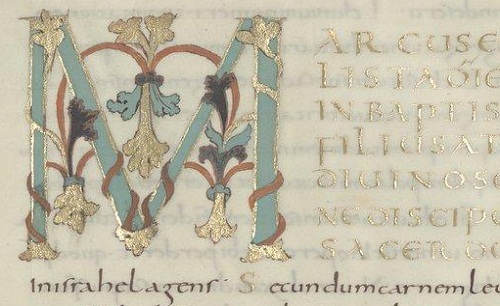 MARCUSE
LISTAD̄IE
INBAPTIS
FILIUSAT
DIUINOSE
NEDISCIP
SACERDO
inisrahelagens· Secundumcarnemleu